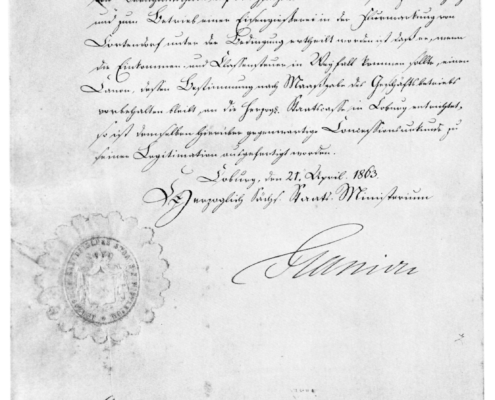 und zum Betrieb einer Eisengießerei in der Flurmarkung von
Cortendorf unter der Bedingung ertheilt worden ist, daß er, wenn
die Einkommen- und Classensteuer in Wegfall kommen sollte, einen
Canon, dessen Bestimmung nach Maasgabe des Geschäftsbetriebs
vorbehalten bleibt, an die Herzogl. Staatscasse in Coburg entrichtet,
so ist demselben hierüber gegenwärtige Concessionsurkunde zu
seiner Legitimation ausgefertigt worden.
Coburg, den 21. April 1863.
Herzoglich Sächs. Staats-Ministerium